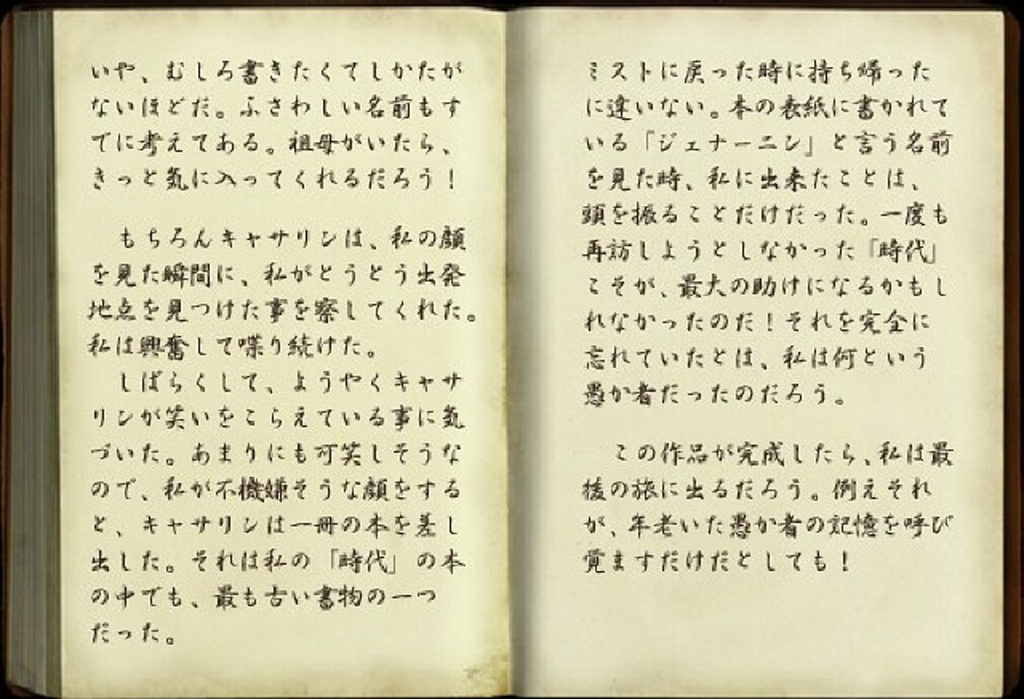 いや、むしろ書きたくてしかたが
ないほどだ。ふさわしい名前もす
でに考えてある。祖母がいたら、
きっと気に入ってくれるだろう！
もちろんキャサリンは、私の顔
を見た瞬間に、私がとうとう出発
地点を見つけた事を察してくれた。
私は興奮して喋り続けた。
しばらくして、ようやくキャサ
リンが笑いをこらえている事に気
づいた。あまりにも可笑しそうな
ので、私が不機嫌そうな顔をする
と、キャサリンは一冊の本を差し
出した。それは私の「時代」の本
の中でも、最も古い書物の一つ
だった。
ミストに戻った時に持ち帰った
に違いない。本の表紙に書かれて
いる「ジェナーニン」と言う名前
を見た時、私に出来たことは、
頭を振ることだけだった。一度も
再訪しようとしなかった「時代」
こそが、最大の助けになるかもし
れなかったのだ！それを完全に
忘れていたとは、私は何という
愚か者だったのだろう。
この作品が完成したら、私は最
後の旅に出るだろう。例えそれ
が、年老いた愚か者の記憶を呼び
覚ますだけだとしても！